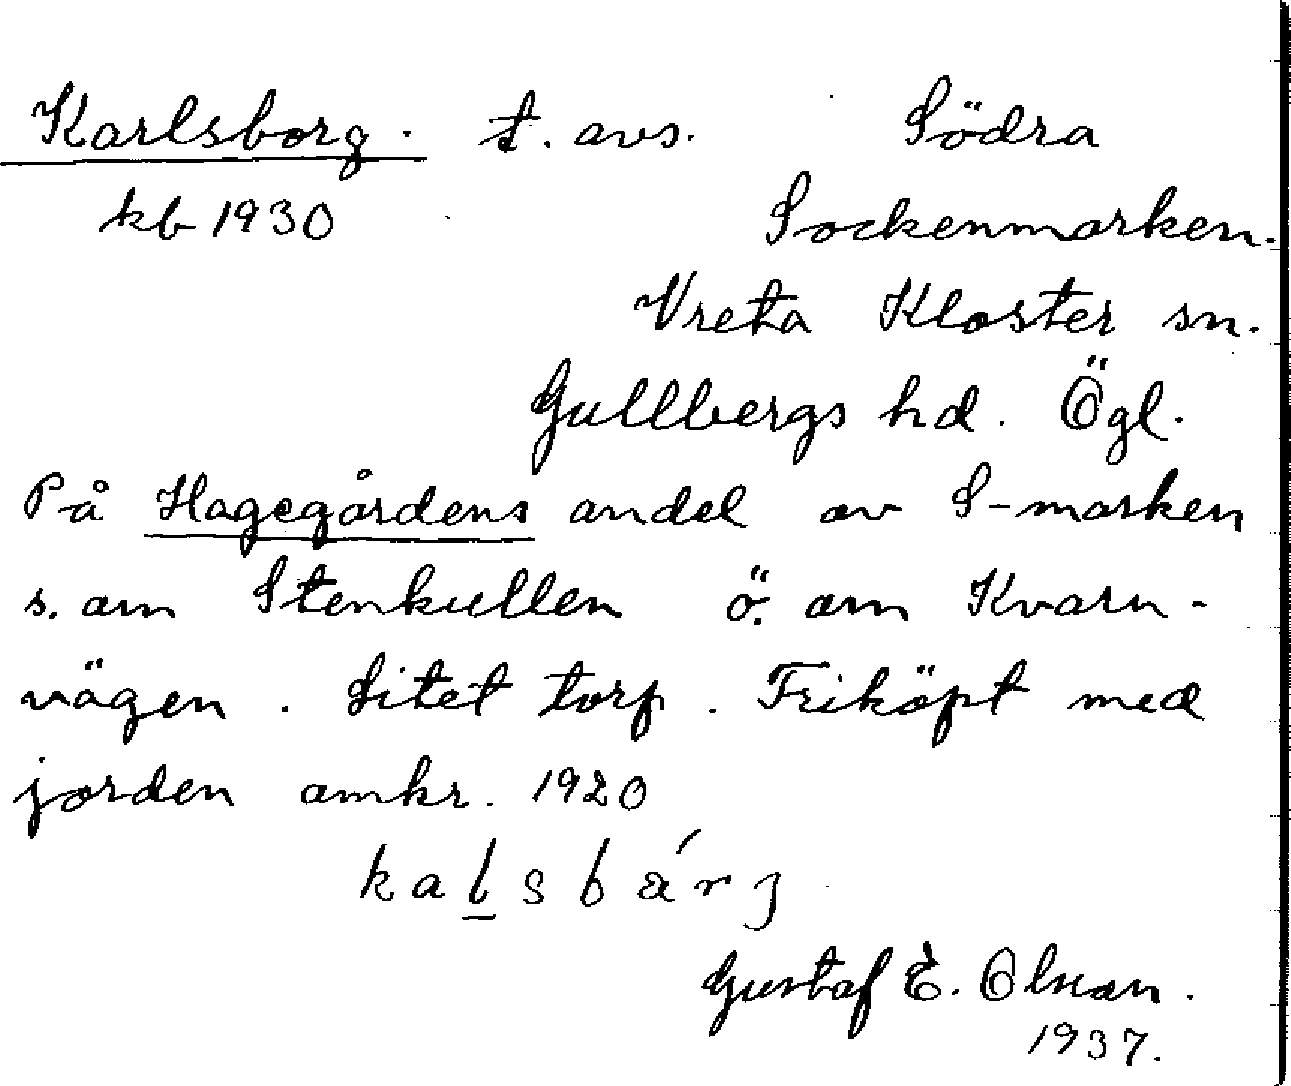 Karlsborg. t. avs. Södra
kb 1930 Sockenmarken.
Vreta Kloster sn.
Gullbergs hd. Ögl.
På Hagegårdens andel av S-marken
s. om Stenkullen ö. om Kvarn-
vägen. Litet torp. Friköpt med
jorden omkr. 1920
kalsbárj
Gustaf E. Olson.
1937.